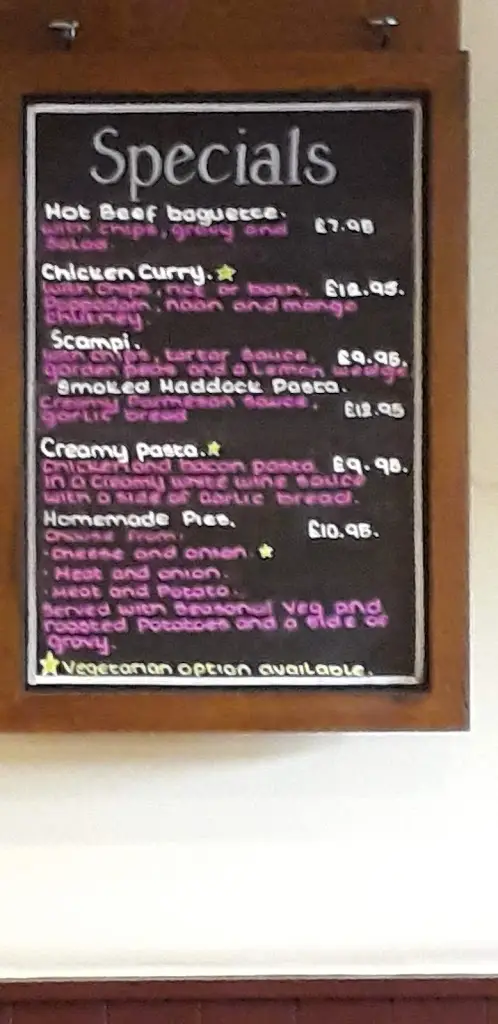 Specials
Hot Beef baguette. £7.95
with chips, gravy and
Salad.
Chicken Curry.
with chips, rice or both, £12.95.
Poppadom, naan and mango
chutney.
Scampi.
with chips, tartar sauce, £9.95.
garden peas and a Lemon wedge
Smoked Haddock Pasta.
Creamy Parmesan sauce, £12.95
garlic bread
Creamy Pasta.
Chicken and bacon pasta £9.95.
in a creamy white wine sauce
with a side of Garlic bread.
Homemade Pies. £10.95.
Choose from:
· Cheese and onion
· Meat and onion.
· Meat and Potato.
Served with Seasonal Veg and
roasted Potatoes and a side of
gravy.
Vegetarian option available.